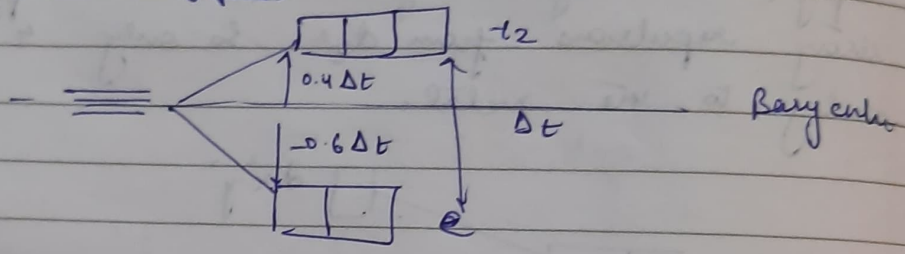 t2
0.4 Δt
Barycentre
Δt
-0.6 Δt
e